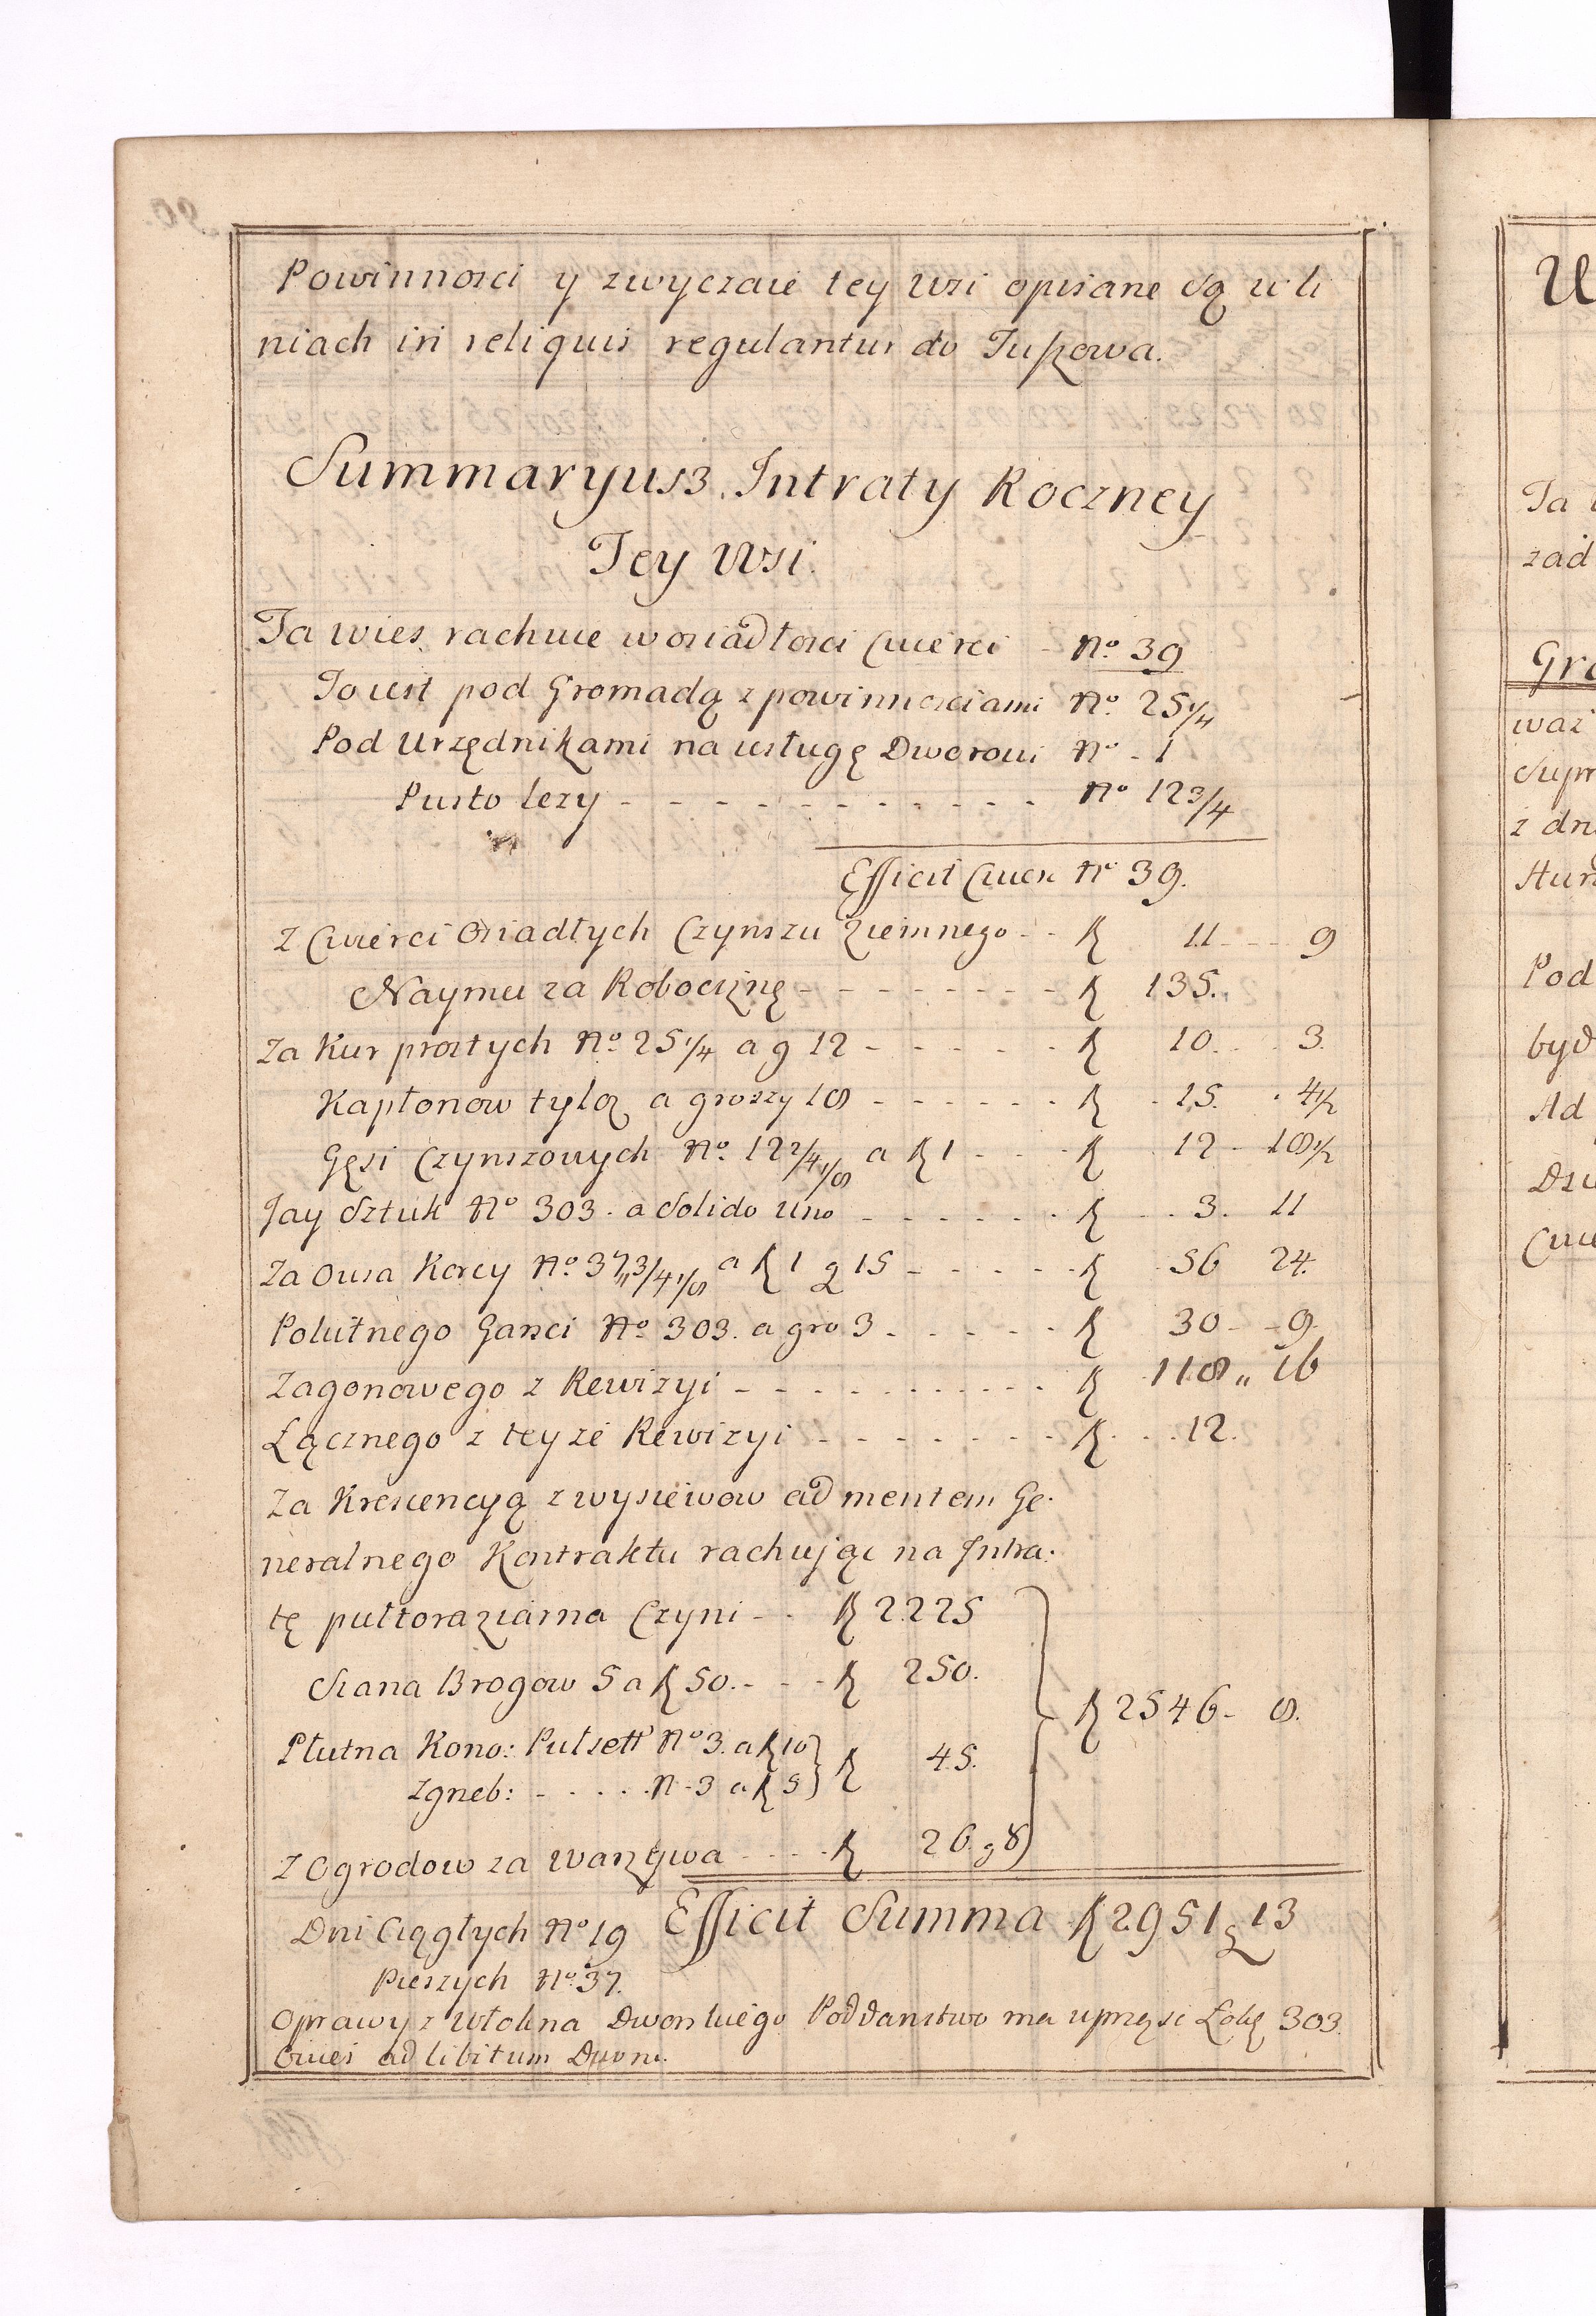 Powinnosci y zwyczaie tey wsi opisane są w li
niach in reliquis regulantur do Tupkowa.
Summaryusz Intraty Roczney
Tey Wsi.
Ta wies rachuie w osiadłosci Cwierci No 39
To iest pod Gromadą z powinnosciami No. 25 1/4
Pod Urzędnikami na usługę Dworowi No - 1
Pusto lezy - - - - - - - - - - - - - No 12 3/4
Efficit Cwier No 39.
Z Cwierci Osiadłych Czynszu ziemnego - - zł 11 - - - 9
Naymu za Robociznę - - - - - - - - zł 135.
Za Kur prostych No 25 1/4 a g 12 - - - - - zł 10. - - 3.
Kapłonow tyląz a groszy 18 - - - - - - zł - 15. 4 1/2
Gęsi Czynszowych No. 12 2/4 1/8 a zł 1 - - - zł 12 - 18 1/2
Jay Sztuk No 303. a Solido Uno - - - - - - zł - - - 3. 11
Za Owsa Korcy No 37 3/4 1/8 a zł 1 g 15 - - - - - zł 56 24.
Polutnego Garści No. 303. a gro 3 - - - - - zł 30 - - 9.
Zagonowego z Rewizyi - - - - - - - - - - zł 118 „ 16
Łącznego z teyze Rewizyi - - - - - - - zł - - - 12.
Za Krescencyą z wysiewow ad mentem Ge:
neralnego Kontraktu rachując na Intra:
tę pułtoraziarna Czyni - - zł 2225
Siana Brogow 5 a zł 50. - - - zł 250.
zł 2546 - 8.
Płutna Kono: Pulsett No 3. a zł 10
zł 45.
Zgneb: - - - - - N - 3 a zł 5
Z Ogrodow za Warzywa - - - - zł 26. g 8
Dni Ciągłych No 19 Efficit Summa zł 2951 g 13
Pieszych No. 37.
Oprawy z Włokna Dworskiego Poddanstwo ma uprząsć Łokę 303.
ad libitum
U
Ta
zad
Gro
waz
z dn
Pod
byd
Ad